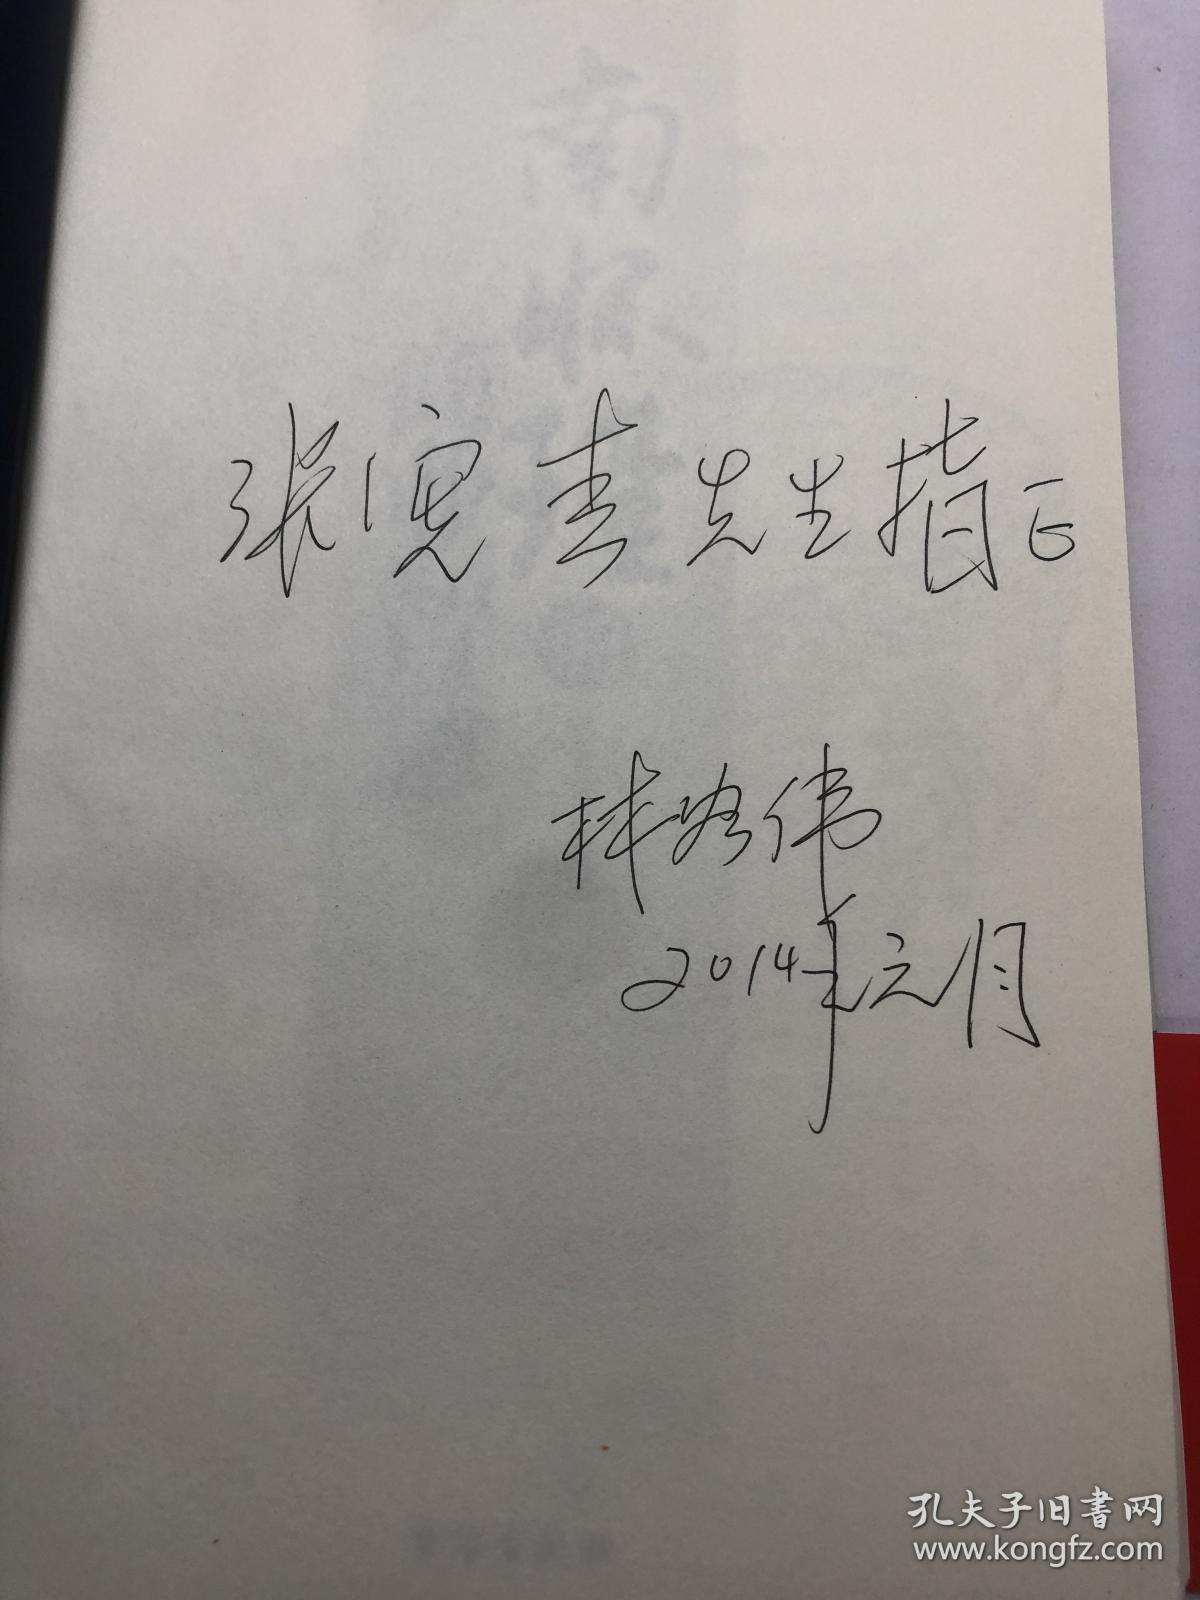 张 先生指正
林 伟
2014年元月
孔夫子旧書网
www.kongfz.com